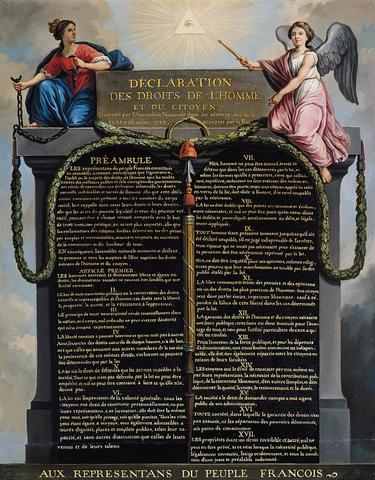 DÉCLARATION
DES DROITS DE L'HOMME
ET DU CITOYEN,
Décrétés par l'Assemblée Nationale dans les séances des 20, 21
PRÉAMBULE
LES représentans du peuple François constitués
en assemblée nationale, considérant que l'ignorance,
l'oubli ou le mépris des droits de l'homme sont les seules
causes des malheurs publics et de la corruption des gouvernemens
ont résolu d'exposer dans une déclaration solemnelle, les droits
naturels, inaliénables et sacrés de l'homme; afin que cette décla-
ration, constamment présente à tous les membres du corps
social, leur rappelle sans cesse leurs droits et leurs devoirs;
afin que les actes du pouvoir législatif et ceux du pouvoir exé-
cutif, pouvant être à chaque instant comparés avec le but
de toute institution politique, en soient plus respectés; afin que
les réclamations des citoyens, fondées désormais sur des princi-
pes simples et incontestables, tournent toujours au maintien
de la constitution et du bonheur de tous.
EN conséquence, l'assemblée nationale reconnoit et déclare,
en présence et sous les auspices de l'Etre suprême les droits
suivans de l'homme et du citoyen.
ARTICLE PREMIER.
LES hommes naissent et demeurent libres et égaux en
droits, les distinctions sociales ne peuvent être fondées que sur
l'utilité commune.
II.
LE but de toute association politique est la conservation des droits
naturels et imprescriptibles de l'homme; ces droits sont la liberté,
la propriété, la sureté, et la résistance à l'oppression.
III.
LE principe de toute souveraineté réside essentiellement dans
la nation, nul corps, nul individu ne peut exercer d'autorité
qui n'en émane expressément.
IV.
LA liberté consiste à pouvoir faire tout ce qui ne nuit pas à autrui
Ainsi, l'exercice des droits naturels de chaque homme, n'a de bor-
nes que celles qui assurent aux autres membres de la société
la jouissance de ces mêmes droits; ces bornes ne peuvent
être déterminées que par la loi.
V.
LA loi n'a le droit de défendre que les actions nuisibles à la
société. Tout ce qui n'est pas défendu par la loi ne peut être
empêché, et nul ne peut être contraint à faire ce qu'elle n'or-
donne pas.
VI.
LA loi est l'expression de la volonté générale; tous les
citoyens ont droit de concourir personnellement, ou par
leurs représentans, à sa formation; elle doit être la même
pour tous, soit qu'elle protège, soit qu'elle punisse. Tous les
citoyens étant égaux à ses yeux, sont également admissibles à
toutes dignités, places et emplois publics, selon leur ca-
pacité, et sans autres distinctions que celles de leurs
vertus et de leurs talens.
VII.
NUL homme ne peut être accusé, arrêté ni
détenu que dans les cas déterminés par la loi, et
selon les formes qu'elle a prescrites, ceux qui sollici-
tent, expédient, exécutent ou font exécuter des ordres ar-
bitraires, doivent être punis; mais tout citoyen appelé ou saisi
en vertu de la loi, doit obéir à l'instant, il se rend coupable
par la résistance.
VIII.
LA loi ne doit établir que des peines strictement et évidemment
nécessaires, et nul ne peut être puni qu'en vertu d'une
loi établie et promulguée antérieurement au délit et légale-
ment appliquée.
IX.
TOUT homme étant présumé innocent jusqu'à ce qu'il ait
été déclaré coupable, s'il est jugé indispensable de l'arrêter,
toute rigueur qui ne seroit pas nécessaire pour s'assurer de
sa personne doit être sévèrement réprimée par la loi.
X.
NUL ne doit être inquiété pour ses opinions, mêmes religi-
euses pourvu que leur manifestation ne trouble pas l'ordre
public établi par la loi.
XI.
LA libre communication des pensées et des opinions
est un des droits les plus précieux de l'homme; tout citoyen
peut donc parler, écrire, imprimer librement: sauf à ré-
pondre de l'abus de cette liberté dans les cas déterminés
par la loi.
XII.
LA garantie des droits de l'homme et du citoyen nécessite
une force publique; cette force est donc instituée pour l'avan-
tage de tous, et non pour l'utilité particulière de ceux à qui
elle est confiée.
XIII.
POUR l'entretien de la force publique, et pour les dépenses
d'administration, une contribution commune est indispen-
sable; elle doit être également répartie entre les citoyens en
raison de leurs facultés.
XIV.
LES citoyens ont le droit de constater par eux même ou
par leurs représentans, la nécessité de la contribution pub-
lique, de la consentir librement, d'en suivre l'emploi, et d'en
déterminer la quotité, l'assiette, le recouvrement et la durée.
XV.
LA société a le droit de demander compte à tout agent
public de son administration.
XVI.
TOUTE société, dans laquelle la garantie des droits n'est
pas assurée, ni la séparation des pouvoirs déterminée,
n'a point de constitution.
XVII.
LES propriétés étant un droit inviolable et sacré, nul ne
peut en être privé, si ce n'est lorsque la nécessité publique,
légalement constatée, l'exige évidemment, et sous la condi-
tion d'une juste et préalable indemnité.
AUX REPRESENTANS DU PEUPLE FRANCOIS